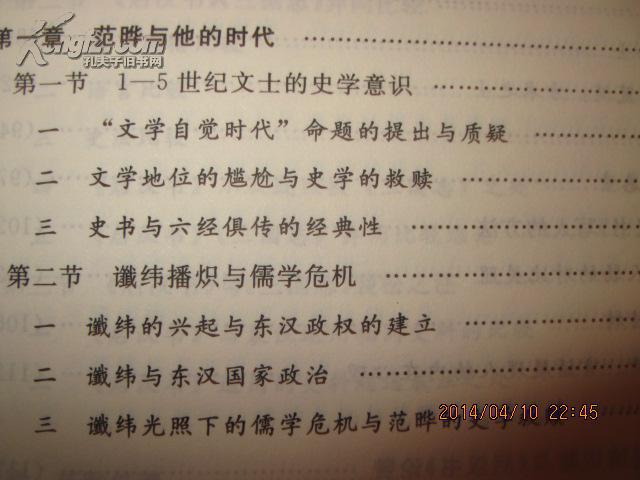 第一章 范晔与他的时代 ………………
第一节 1—5世纪文士的史学意识 ………………
一 “文学自觉时代”命题的提出与质疑 ………………
二 文学地位的尴尬与史学的救赎 ………………
三 史书与六经俱传的经典性 ………………
第二节 谶纬播炽与儒学危机 ………………
一 谶纬的兴起与东汉政权的建立 ………………
二 谶纬与东汉国家政治 ………………
三 谶纬光照下的儒学危机与范晔的史学
2014/04/10 22:45
孔夫子旧书网